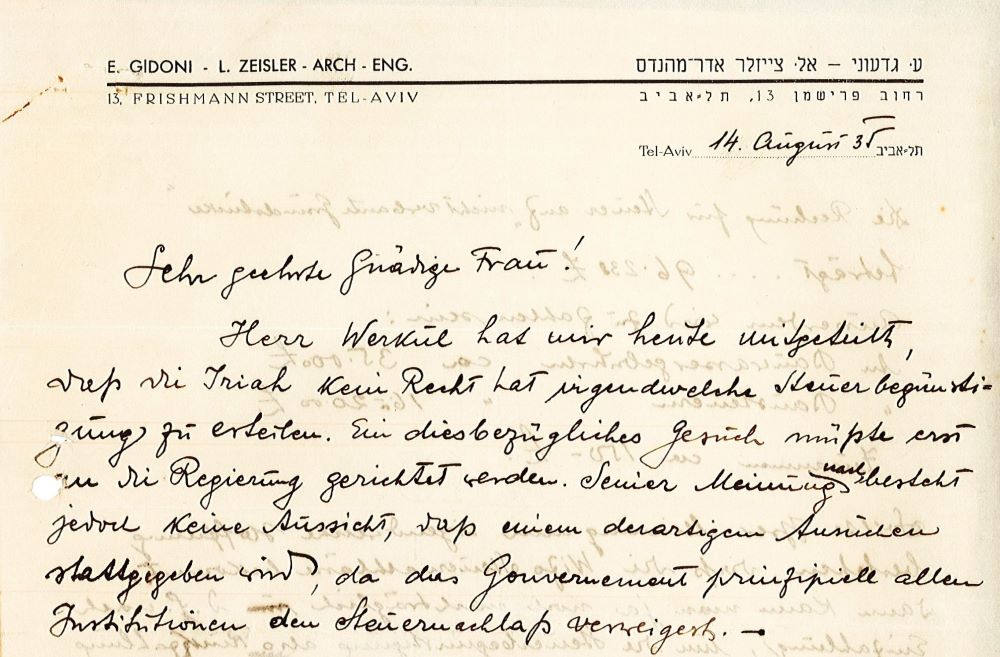 E. GIDONI - L. ZEISLER - ARCH - ENG.
ע. גדעוני – אל. צייזלר אדר־מהנדס
13, FRISHMANN STREET, TEL-AVIV
רחוב פרישמן 13, תל־אביב
Tel-Aviv 14. August 35 תל־אביב
Sehr geehrte Gnädige Frau!
Herr Werkül hat mir heute mitgeteilt,
daß die Iriah kein Recht hat irgendwelche Steuerbegünsti=
gung zu erteilen. Ein diesbezügliches Gesuch müßte erst
an die Regierung gerichtet werden. Seiner Meinung nach besteht
jedoch keine Aussicht, daß einem derartigem Ansuchen
stattgegeben wird, da das Gouvernement prinzipiell allen
Institutionen den Steuernachlaß verweigert. —